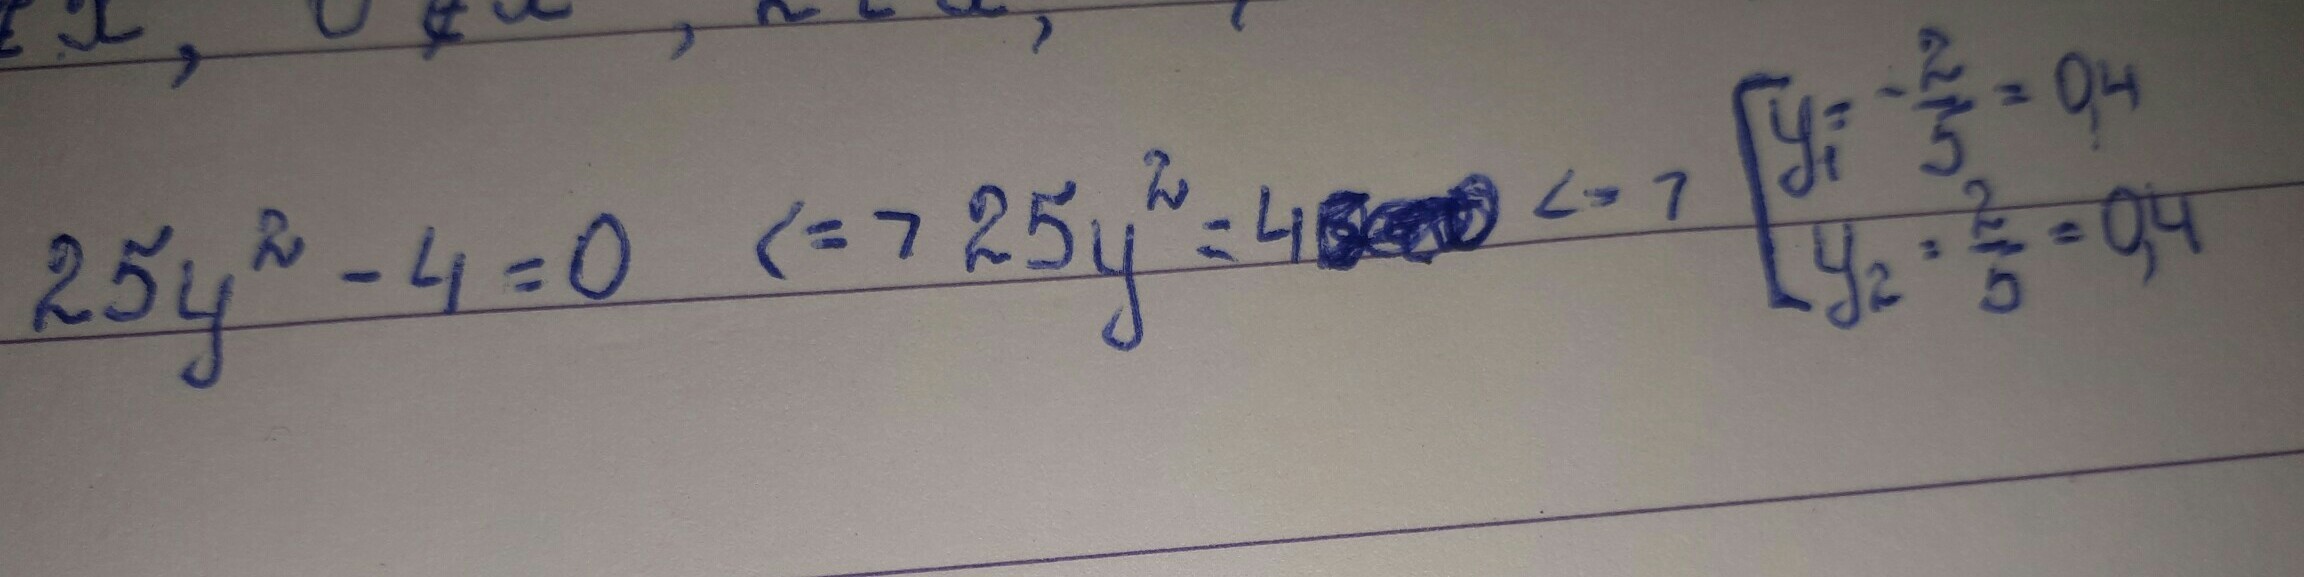 25y² - 4 = 0 <=> 25y² = 4 <=> [ y₁ = - 2/5 = 0,4
y₂ = 2/5 = 0,4